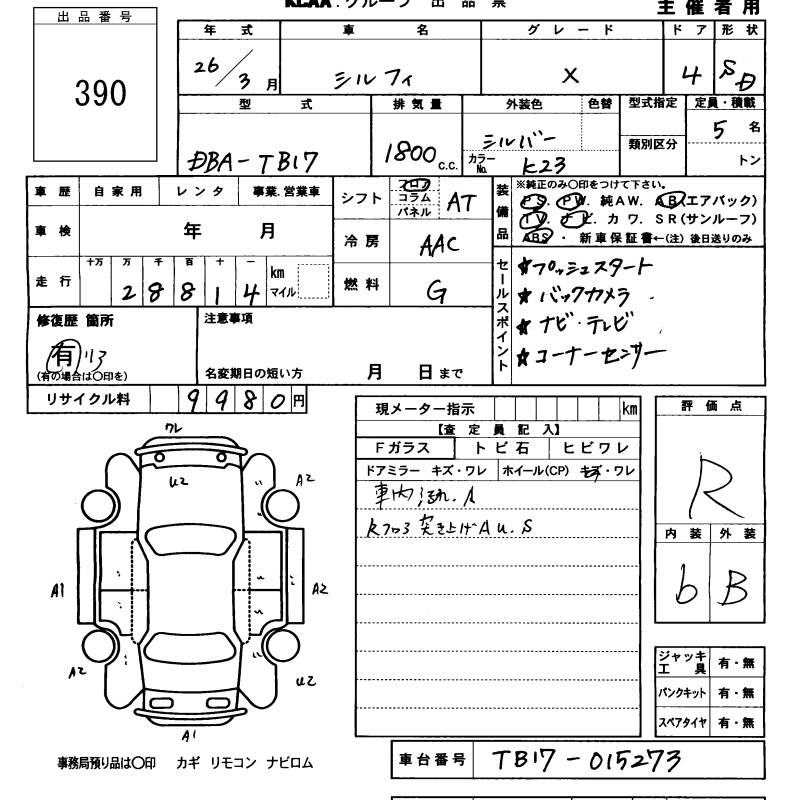 KLAX. グループ 出品票
主催者用
出品番号
390
年式 車名 グレード ドア 形状
26/3月 シルフィ X 4 SD
型式 排気量 外装色 色替 型式指定 定員・積載
DBA-TB17 1800c.c. シルバー カラーNo. K23 類別区分 5名 トン
車歴 自家用 レンタ 事業.営業車
車検 年 月
走行 十万 万 千 百 十 一 km マイル
2 8 8 1 4
シフト フロア コラム パネル AT
冷房 AAC
燃料 G
装備品 ※純正のみ○印をつけて下さい。
PS. PW. 純AW. AB(エアバック)
TV. ナビ. カワ. SR(サンルーフ)
ABS ・ 新車保証書←(注) 後日送りのみ
セールスポイント
☆プッシュスタート
☆バックカメラ
☆ナビ・テレビ
☆コーナーセンサー
修復歴 箇所
有 リア
(有の場合は○印を)
注意事項
名変期日の短い方 月 日まで
リサイクル料 9980円
現メーター指示 km
【査定員記入】
Fガラス トビ石 ヒビワレ
ドアミラー キズ・ワレ ホイール(CP) キズ・ワレ
車内汚れ.A
Kフロア突き上げAU.S
評価点
R
内装 外装
b B
ワレ
U2
A2
A1
A2
A2
U2
A1
ジャッキ工具 有・無
パンクキット 有・無
スペアタイヤ 有・無
事務局預り品は○印 カギ リモコン ナビロム
車台番号 TB17-015273